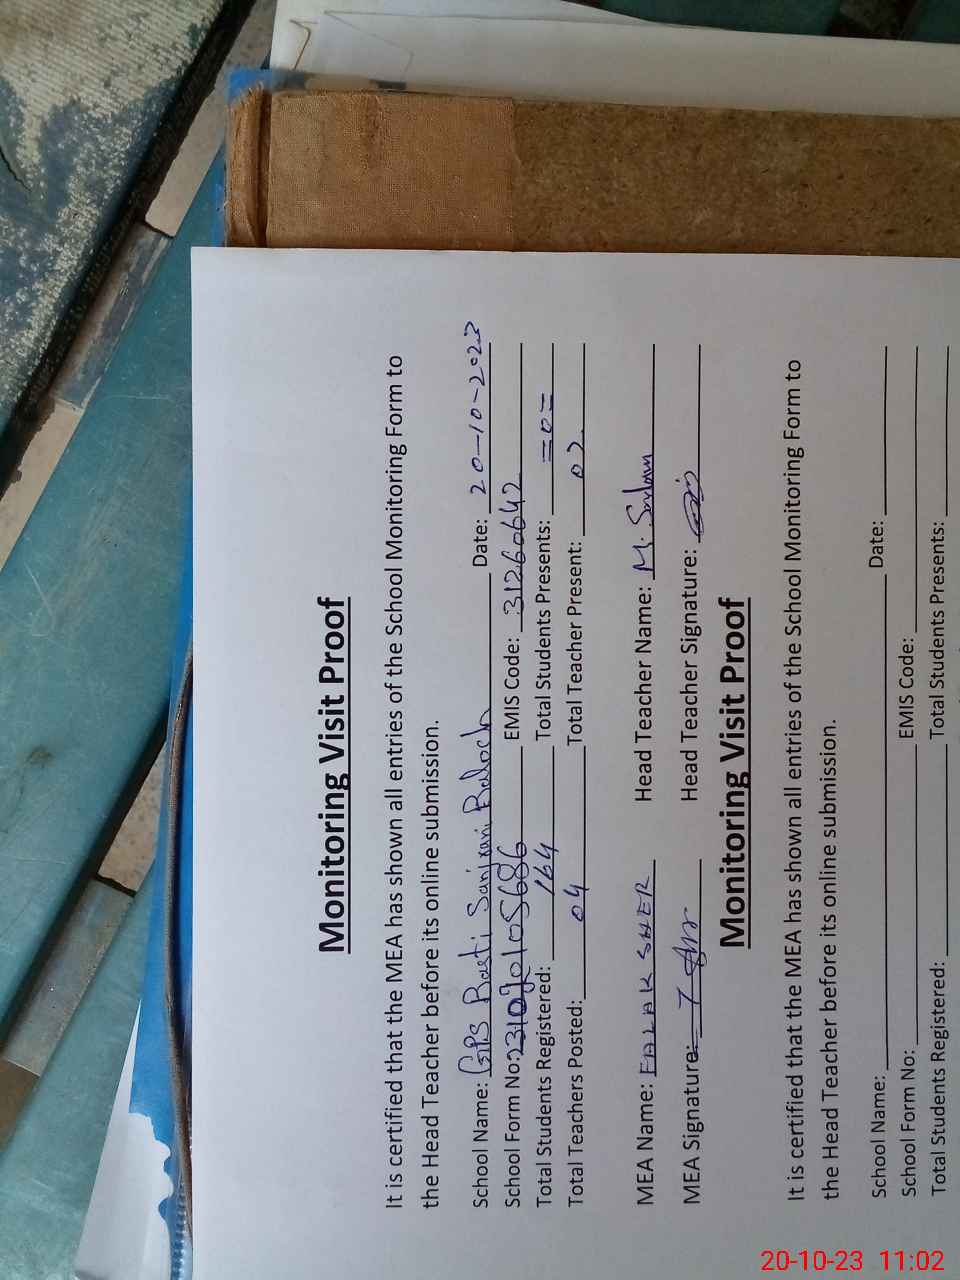 Monitoring Visit Proof
It is certified that the MEA has shown all entries of the School Monitoring Form to
the Head Teacher before its online submission.
School Name: GPS Basti Sanjrani Baloch Date: 20-10-2023
School Form No: EMIS Code: 31260642
Total Students Registered: 164 Total Students Presents: =0=
Total Teachers Posted: 04 Total Teacher Present: 02
MEA Name: FALAK SHER Head Teacher Name: M.
MEA Signature: Head Teacher Signature:
Monitoring Visit Proof
It is certified that the MEA has shown all entries of the School Monitoring Form to
the Head Teacher before its online submission.
School Name: Date:
School Form No: EMIS Code:
Total Students Registered: Total Students Presents:
20-10-23 11:02